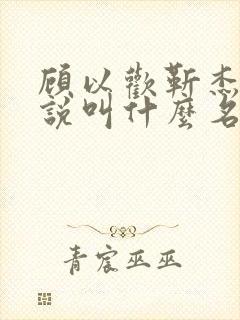 顾以歡靳焘
說叫什麼名
青宸巫巫